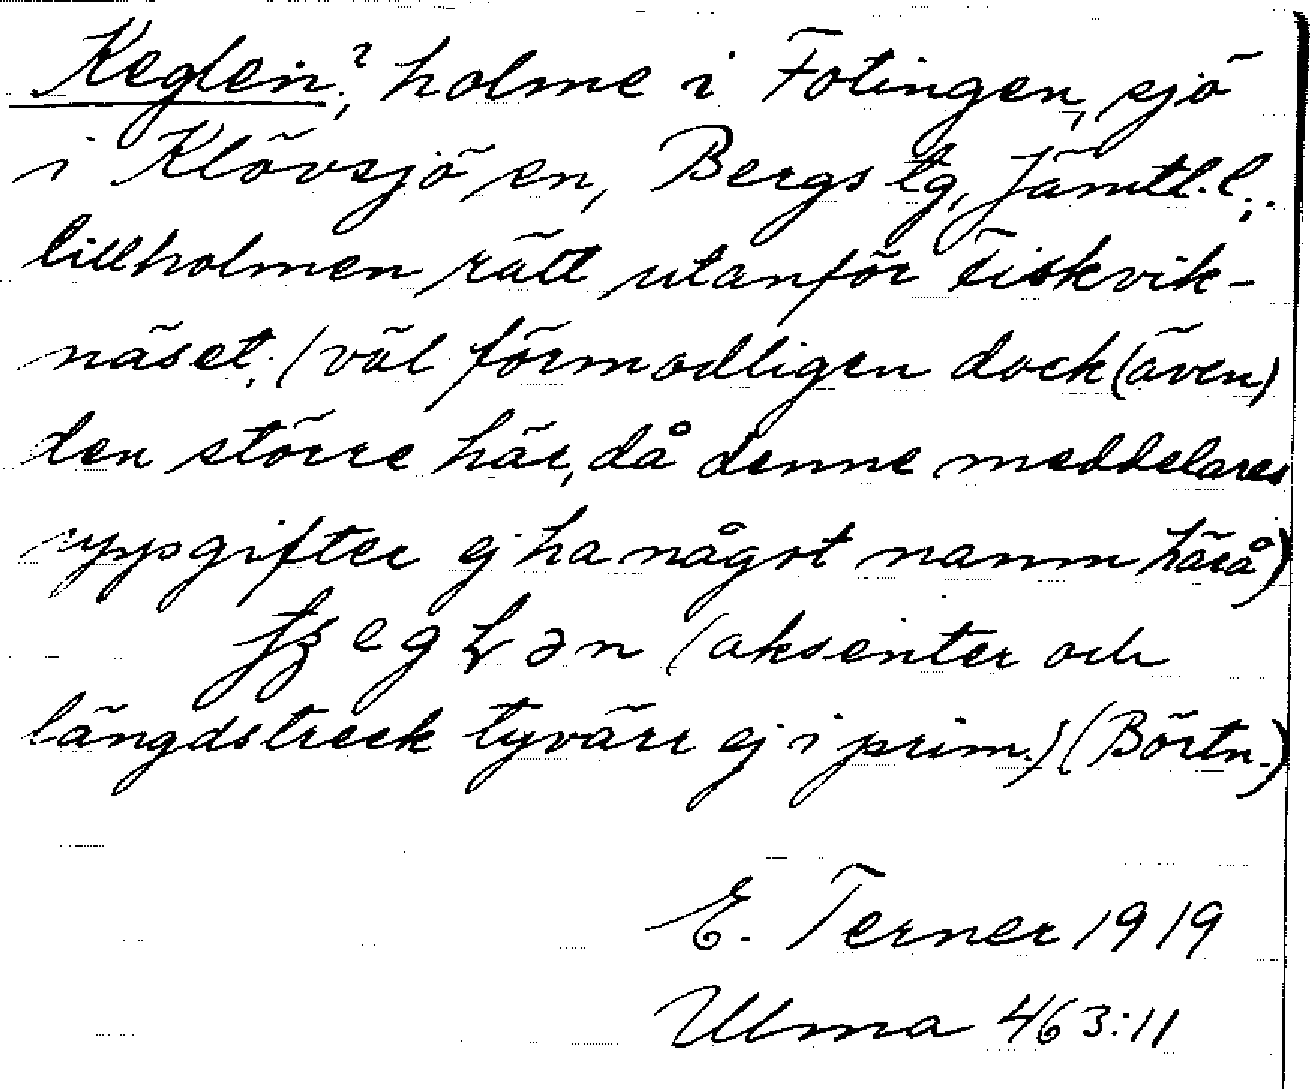 Keglen?, holme i Fotingen, sjö
i Klövsjö sn, Bergs tg, Jämtl. l.;
lillholmen rätt utanför Fiskvik-
näset. (väl förmodligen dock (även)
den större här, då denne meddelares
uppgifter ej ha något namn härå)
(aksenter och
längdstreck tyvärr ej i prim.) (Börtn.)
E. Terner 1919
Ulma 463:11